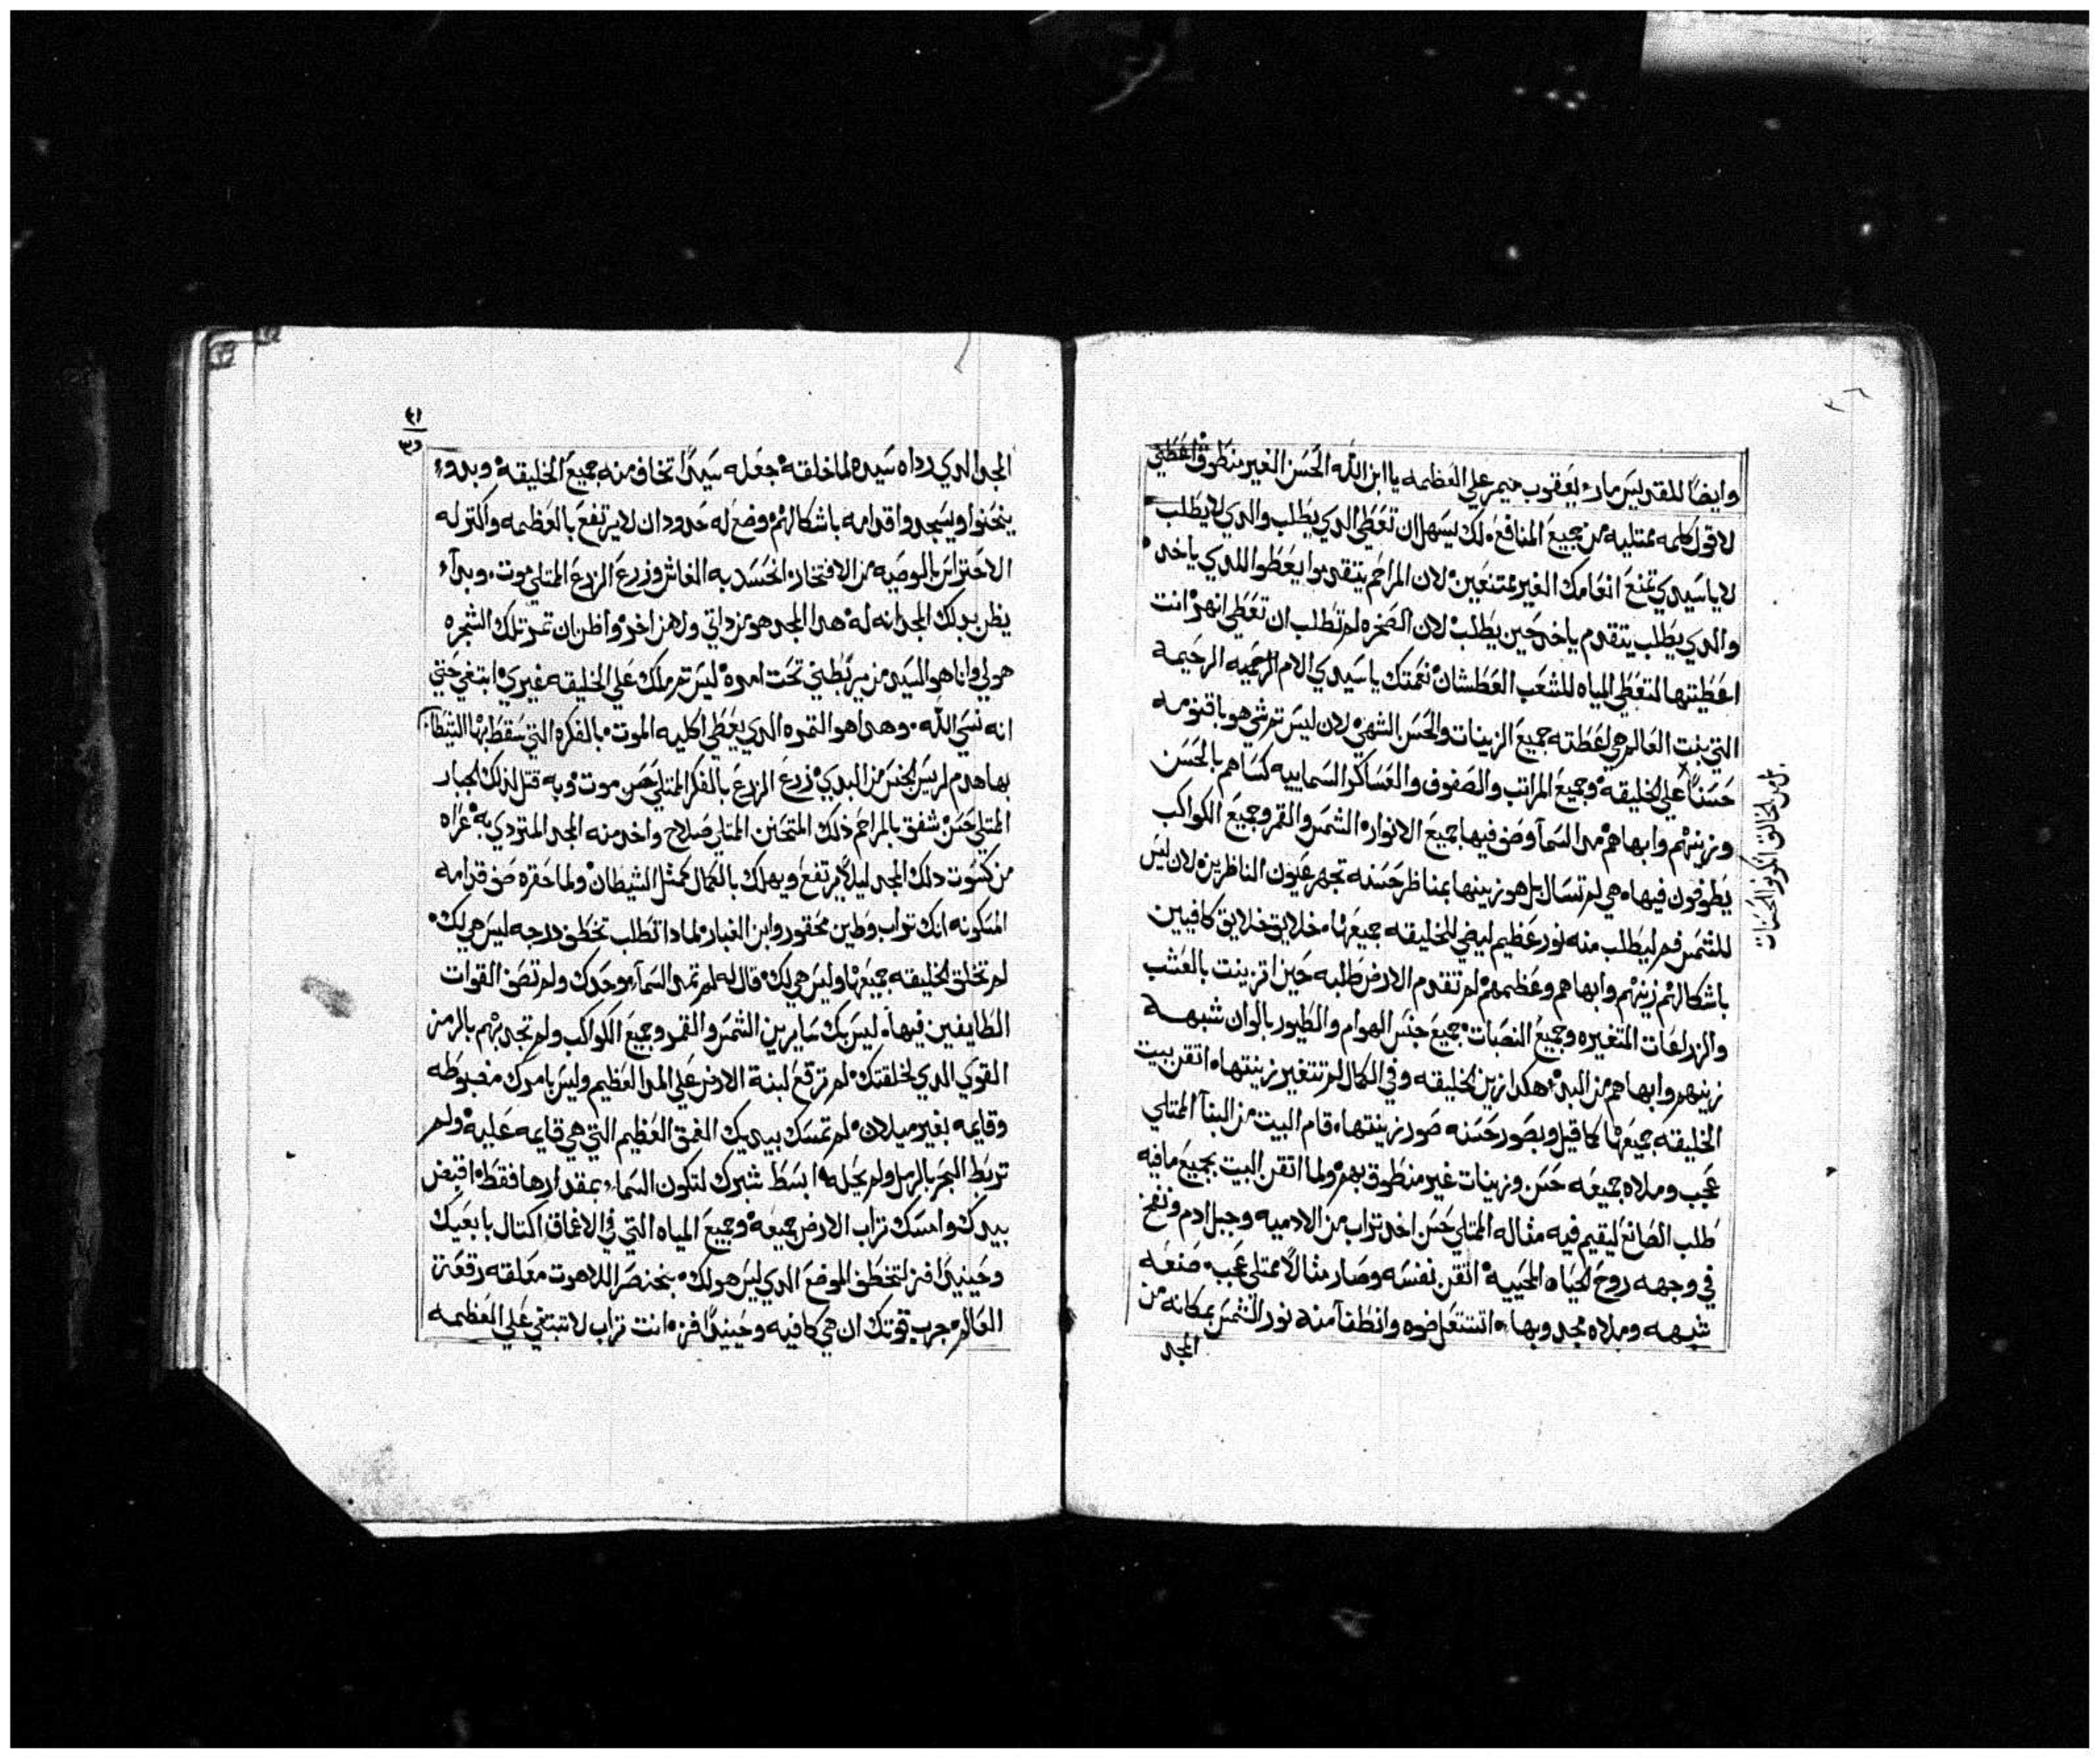 وايضًا للقديس مار يعقوب ميمر علي العظمه يا ابن الله الحسن الغير منطوق اعطني
لاقول كلمه ممتليه من جميع المنافع لك يسهل ان تعطي الدي يطلب والدي لا يطلب
لا يا سيدي تمنع انعامك الغير ممتنعين لان المراحم يتقدموا يعطوا للدي ياخد
والدي يطلب يتقدم ياخد حين يطلب لان الصخره لم تطلب ان تعطي انهر انت
اعطيتها لتعطي المياه للشعب العطشان نعمتك يا سيدي الام الرحيمه
التي بنت العالم هي اعطته جميع الزينات والحسن الشهي لان ليس تم شي هو باقنومه
حسنًا علي الخليقه وجميع المراتب والصفوف والعساكر السماييه كساهم بالحسن
وزينهم وابهاهم مد السمآ وصف فيها جميع الانوار الشمس والقمر وجميع الكواكب
يطوفون فيها هي لم تسال بل هو زينها بمناظر حسنه تجهر عيون الناظرين لان ليس
للشمس فم ليطلب منه نور عظيم ليضي للخليقه جميعها خلايق خلايق كافيين
باشكالهم زينهم وابهاهم وعظمهم لم تتقدم الارض طلبه حين اتزينت بالعشب
والزراعات المتغيره وجميع النصبات جميع جنس الهوام والطيور بالوان شبهه
زينهم وابهاهم من البدء هكدا زين الخليقه وفي الكمال لم تتغير زينتها اتقن بيت
الخليقه جميعها كما قيل وبصور حسنه صور زينتها قام البيت من البنا الممتلي
عجب وملاه جميعه حسن وزينات غير منطوق بهم ولما اتقن البيت بجميع ما فيه
طلب الصانع ليقيم فيه مثاله الممتلي حسن اخد تراب من الادميه وجبل ادم ونفخ
في وجهه روح الحياه المحييه اتقن نفسه وصار مثالاً ممتلي عجب صنعه
شبهه وملاه مجد وبها اشتعل ضوه وانطفا منه نور الشمس بمكانه من
المجد
المجد الدي رداه سيده لما خلقه جعله سيدًا تخاف منه جميع الخليقه وبدوء
ينحنوا ويسجدوا قدامه باشكالهم وضع له حدود ان لا يرتفع بالعظمه واكتر له
الاحتراس بالوصيه من الافتخار انحسد به الغاش وزرع الزرع الممتلي موت وبدآء
يظن بدلك المجد انه له هدا المجد هو من داتي ولا من اخر واظن ان ثمر تلك الشجره
هو لي وانا هو السيد من يربطني تحت امره ليس تم ملك علي الخليقه غيري ابتغي حتي
انه نسي الله وهدا هو التمره الدي يعطي اكليه الموت بالفكره التي سقط بها الشيطان
بها هدم لريس الجنس من البدي زرع الزرع بالفكر الممتلي موت وبه قتل لدلك الجبار
الممتلي حسن شفق بالمراحم ذلك المتحنن الممتلي صلاح واخد منه المجد المتردي به عراه
من كسوت دلك المجد ليلاً يرتفع ويهلك بالكمال كمثل الشيطان ولما حقره صف قدامه
المسكونه انك تراب وطين محقور وابن الغبار لمادا تطلب تخطف درجه ليس هي لك
لم تخلق الخليقه جميعها وليس هي لك قال له لم تمد السمآء وحدك ولم تصف القوات
الطايفين فيها ليس بك سايرين الشمس والقمر وجميع الكواكب ولم تجدبهم بالرمز
القوي الدي لخلقتك لم ترفع لبنة الارض علي المد العظيم وليس بامرك مضبوطه
وقايمه بغير ميلان لم تمسك بيديك الغمق العظيم التي هي قايمه عليه ولم
تربط البحر بالرمل ولم يحله ابسط شبرك لتكون السماء بمقدارها فقط اقبض
بيدك وامسك تراب الارض جميعه وجميع المياه التي في الاعماق اكتال باباعيك
وحينيدًا فز لتخطف الموضع الدي ليس هو لك بخنصر اللاهوت معلقه رقعة
العالم جرب قوتك ان هي كافيه وحينيدًا فز انت تراب لا تبتغي علي العظمه